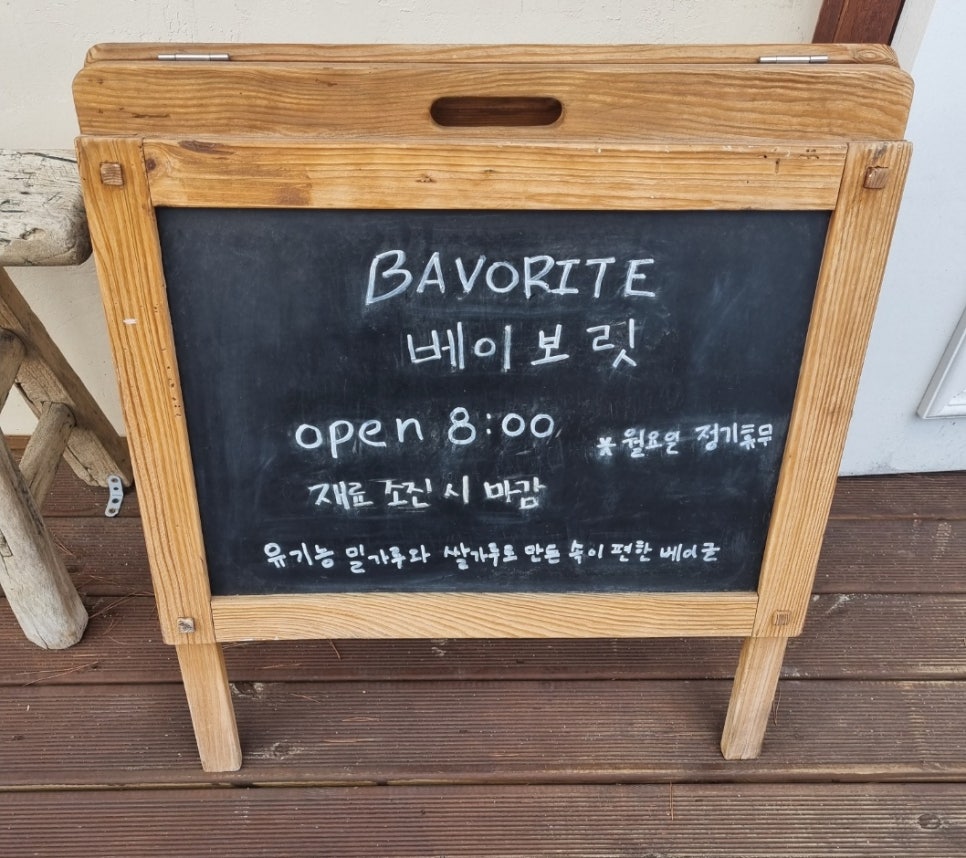 BAVORITE
베이보릿
open 8:00
※ 월요일 정기휴무
재료 소진 시 마감
유기농 밀가루와 쌀가루로 만든 속이 편한 베이글